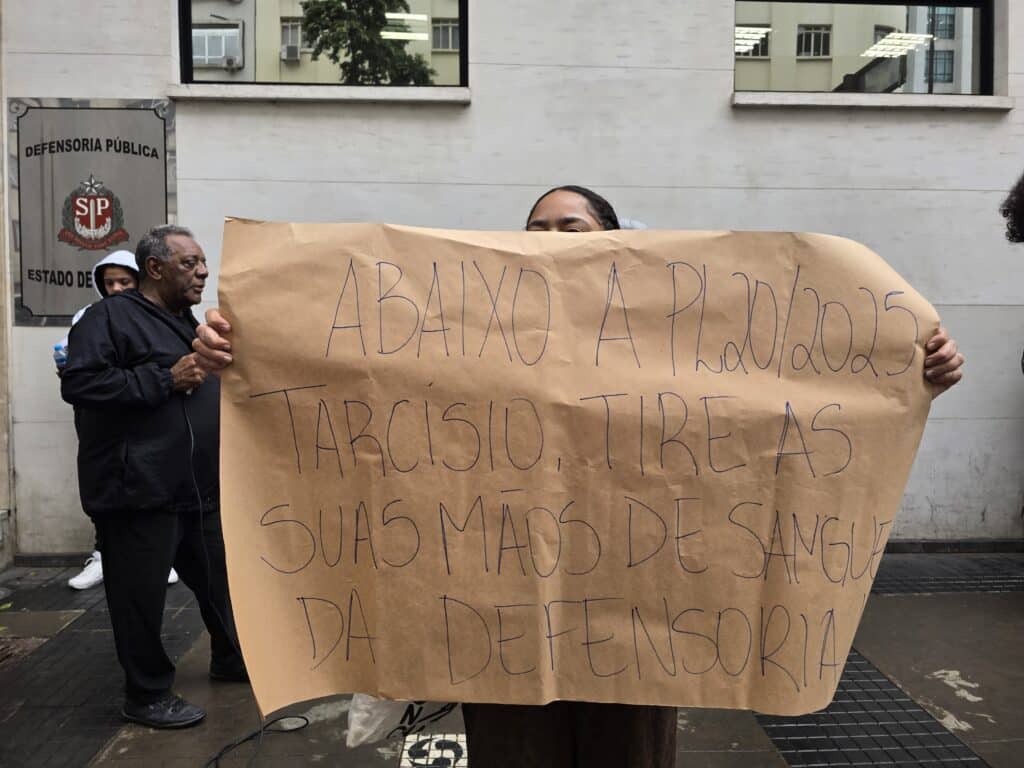 DEFENSORIA PÚBLICA
SP
ESTADO DE
ABAIXO A PL20/2025
TARCÍSIO, TIRE AS
SUAS MÃOS DE SANGUE
DA DEFENSORIA!